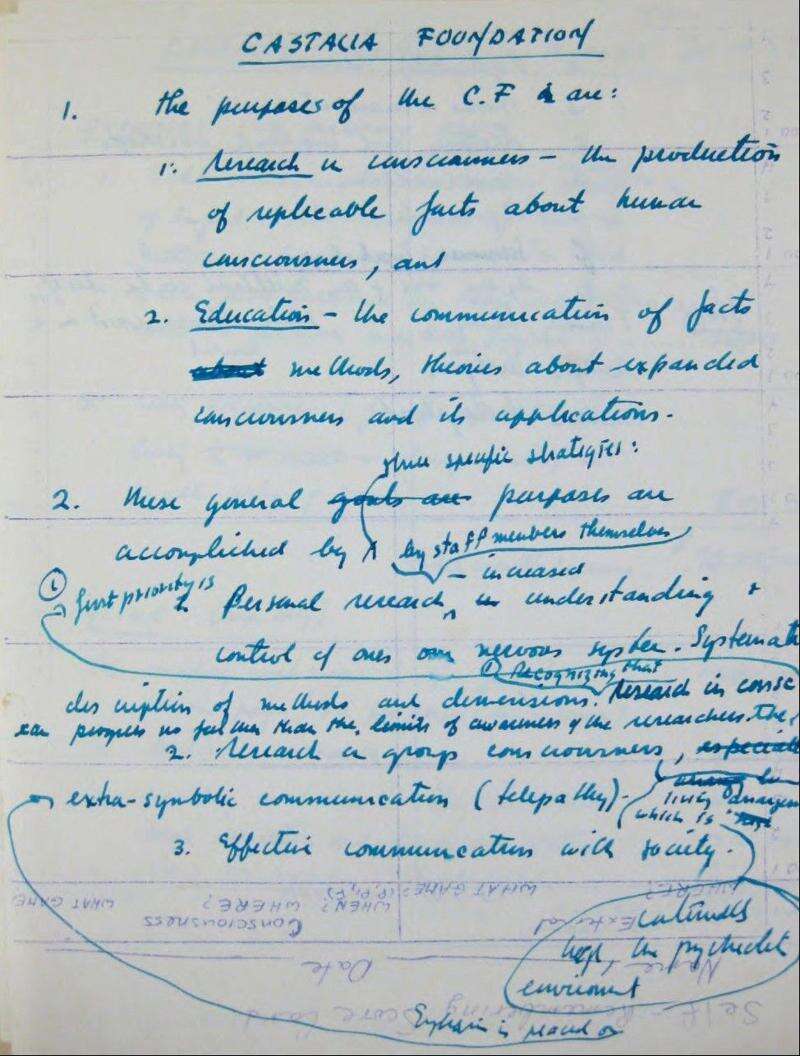 CASTALIA FOUNDATION
1. the purposes of the C.F are:
1. Research in consciousness – the production
of replicable facts about human
consciousness, and
2. Education – the communication of facts
about methods, theories about expanded
consciousness and its applications.
three specific strategies:
2. these general goals are purposes are
accomplished by
by staff members themselves
– increased
① first priority is
1. Personal research, in understanding +
control of ones own nervous system. Systematic
① Recognizing that
description of methods and dimensions. Research in consc
can progress no further than the limits of awareness of the researchers. The
2. Research in group consciousness, especial
extra-symbolic communication (telepathy).
living
which is
3. Effective communication with society.
WHERE? WHAT GAME? WHEN? WHERE? WHAT GAME
External CONSCIOUSNESS
the
enviroment
Name Date
Self-Remembering Score Card
Emphasis is placed on